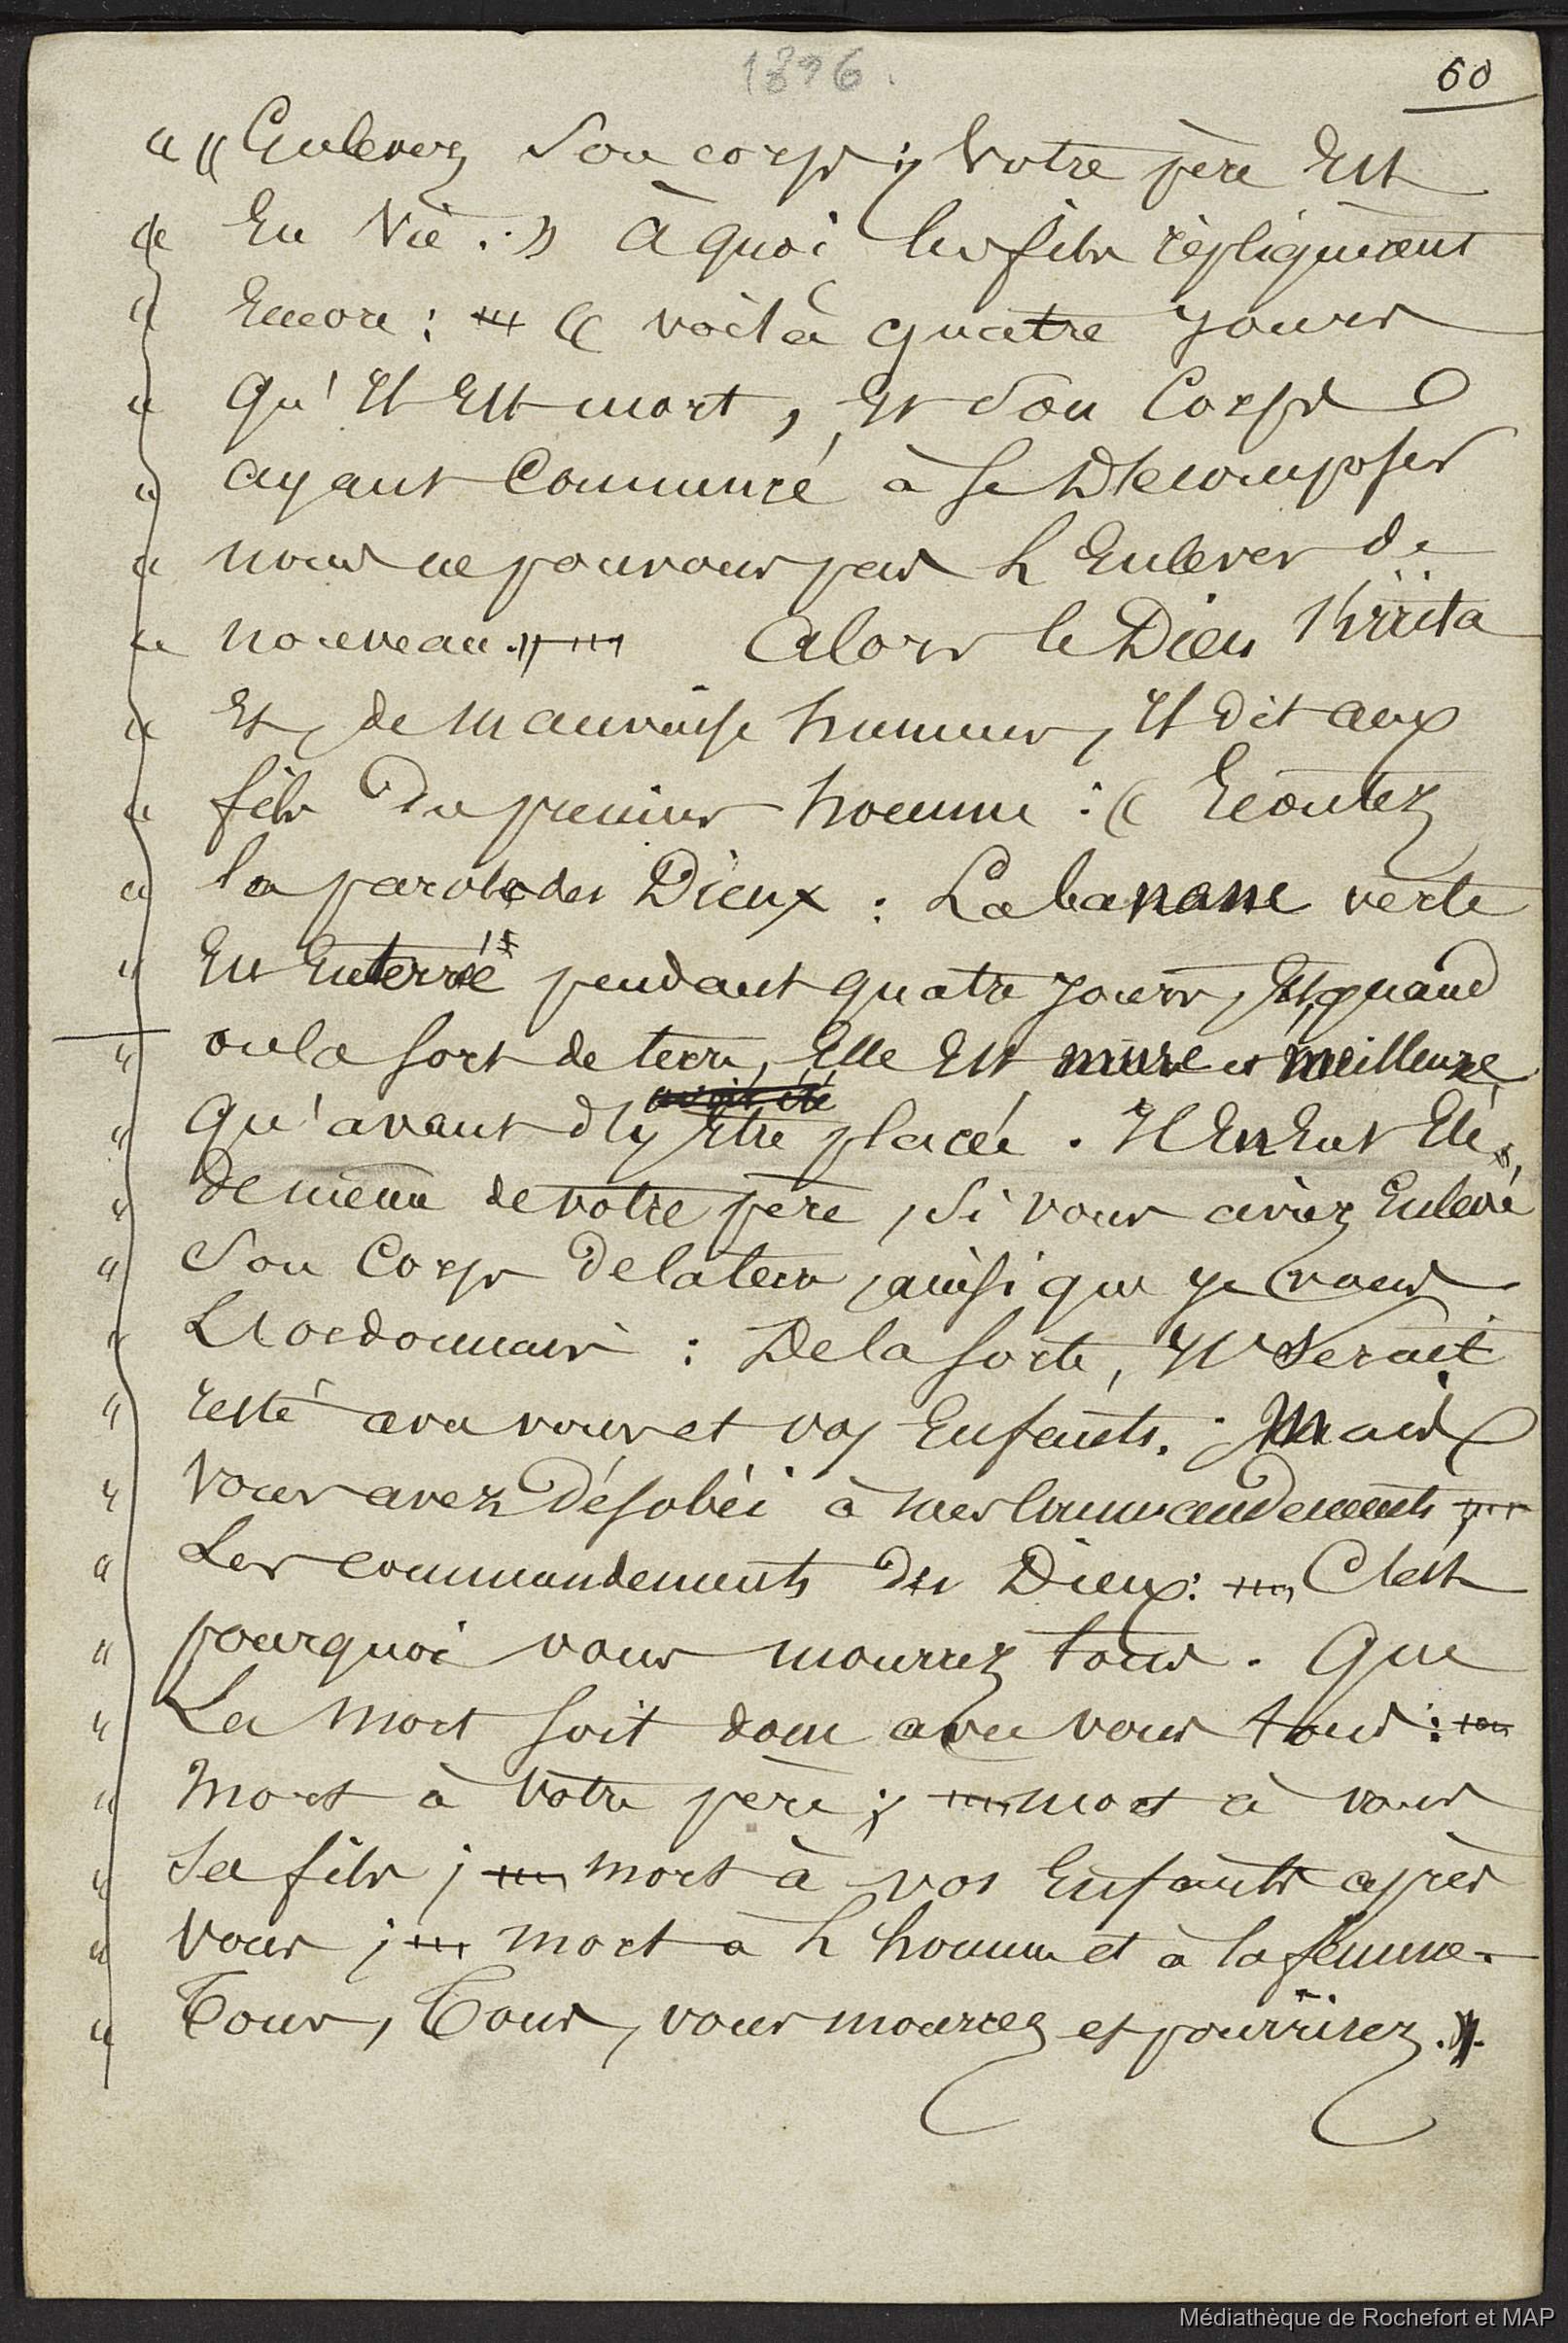 1896.
60
" « Enlevez Son corps ; Votre père Est
" En Vie. » à quoi les fils répliquèrent
" Encore : « voilà quatre Jours
" qu'Il Est mort, Et Son Corps
" ayant Commencé à se Décomposer
" nous ne pouvons pas L'Enlever de
" nouveau. » Alors le Dieu s'irrita
" Et, de mauvaise humeur, Il dit aux
" fils Du premier homme : « Ecoutez
" la parole des Dieux : La banane verte
" Est Enterrée pendant quatre Jours, Et quand
" on la sort de terre, Elle Est mure et meilleure
" qu'avant d'y Etre placée. Il En Eut Eté
" de même de votre père, Si vous aviez Enlevé
" Son Corps de la terre, ainsi que Je vous
" L'ordonnais : De la sorte, Il Serait
" resté avec vous et vos Enfants. ; Mais
" Vous avez Désobéi à mes Commandements
" Les commandements des Dieux : C'est
" pourquoi vous mourrez tous. Que
" La Mort soit donc avec vous tous :
" Mort à Votre père ; mort à vous
" Ses fils ; mort à vos Enfants après
" Vous ; mort à L'homme et à la femme.
" Tous, Tous, vous mourrez et pourrirez. »
Médiathèque de Rochefort et MAP